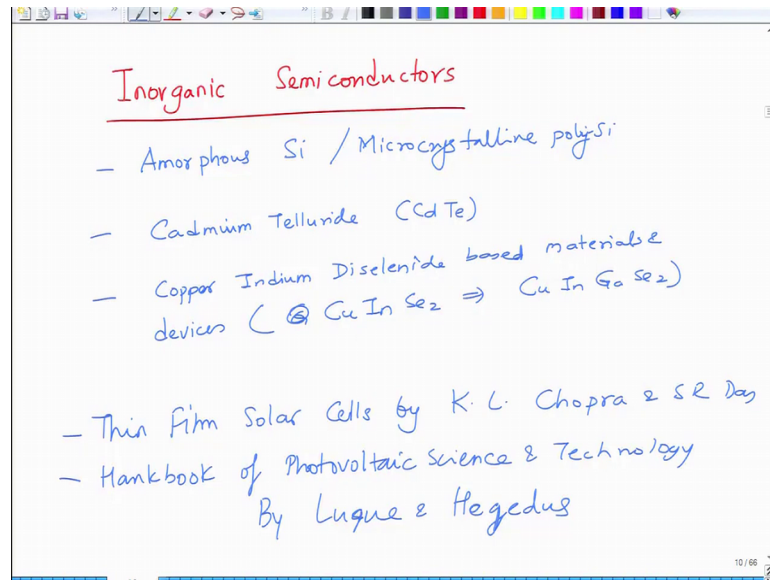 Inorganic Semiconductors
– Amorphous Si / Microcrystalline poly-Si
– Cadmium Telluride (CdTe)
– Copper Indium Diselenide based materials &
devices ( CuInSe2 ⇒ CuInGaSe2)
– Thin Film Solar Cells by K. L. Chopra & SR Das
– Hankbook of Photovoltaic Science & Technology
By Luque & Hegedus
10 / 66